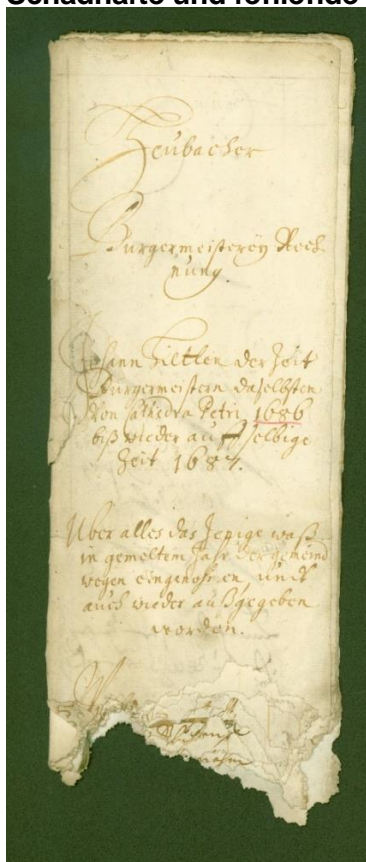 Schadhafte und fehlende
Zeubacher
Burgermeisterey Rech
nung.
Johann Hiltlen der Zeit
Burgermeistern daselbsten
Von Cathedra Petri 1686
biß wieder auff selbige
Zeit 1687.
Uber alles das Jenige waß
in gemeltem Jahr der gemeind
wegen eingenohmen, undt
auch wieder außgegeben
worden.